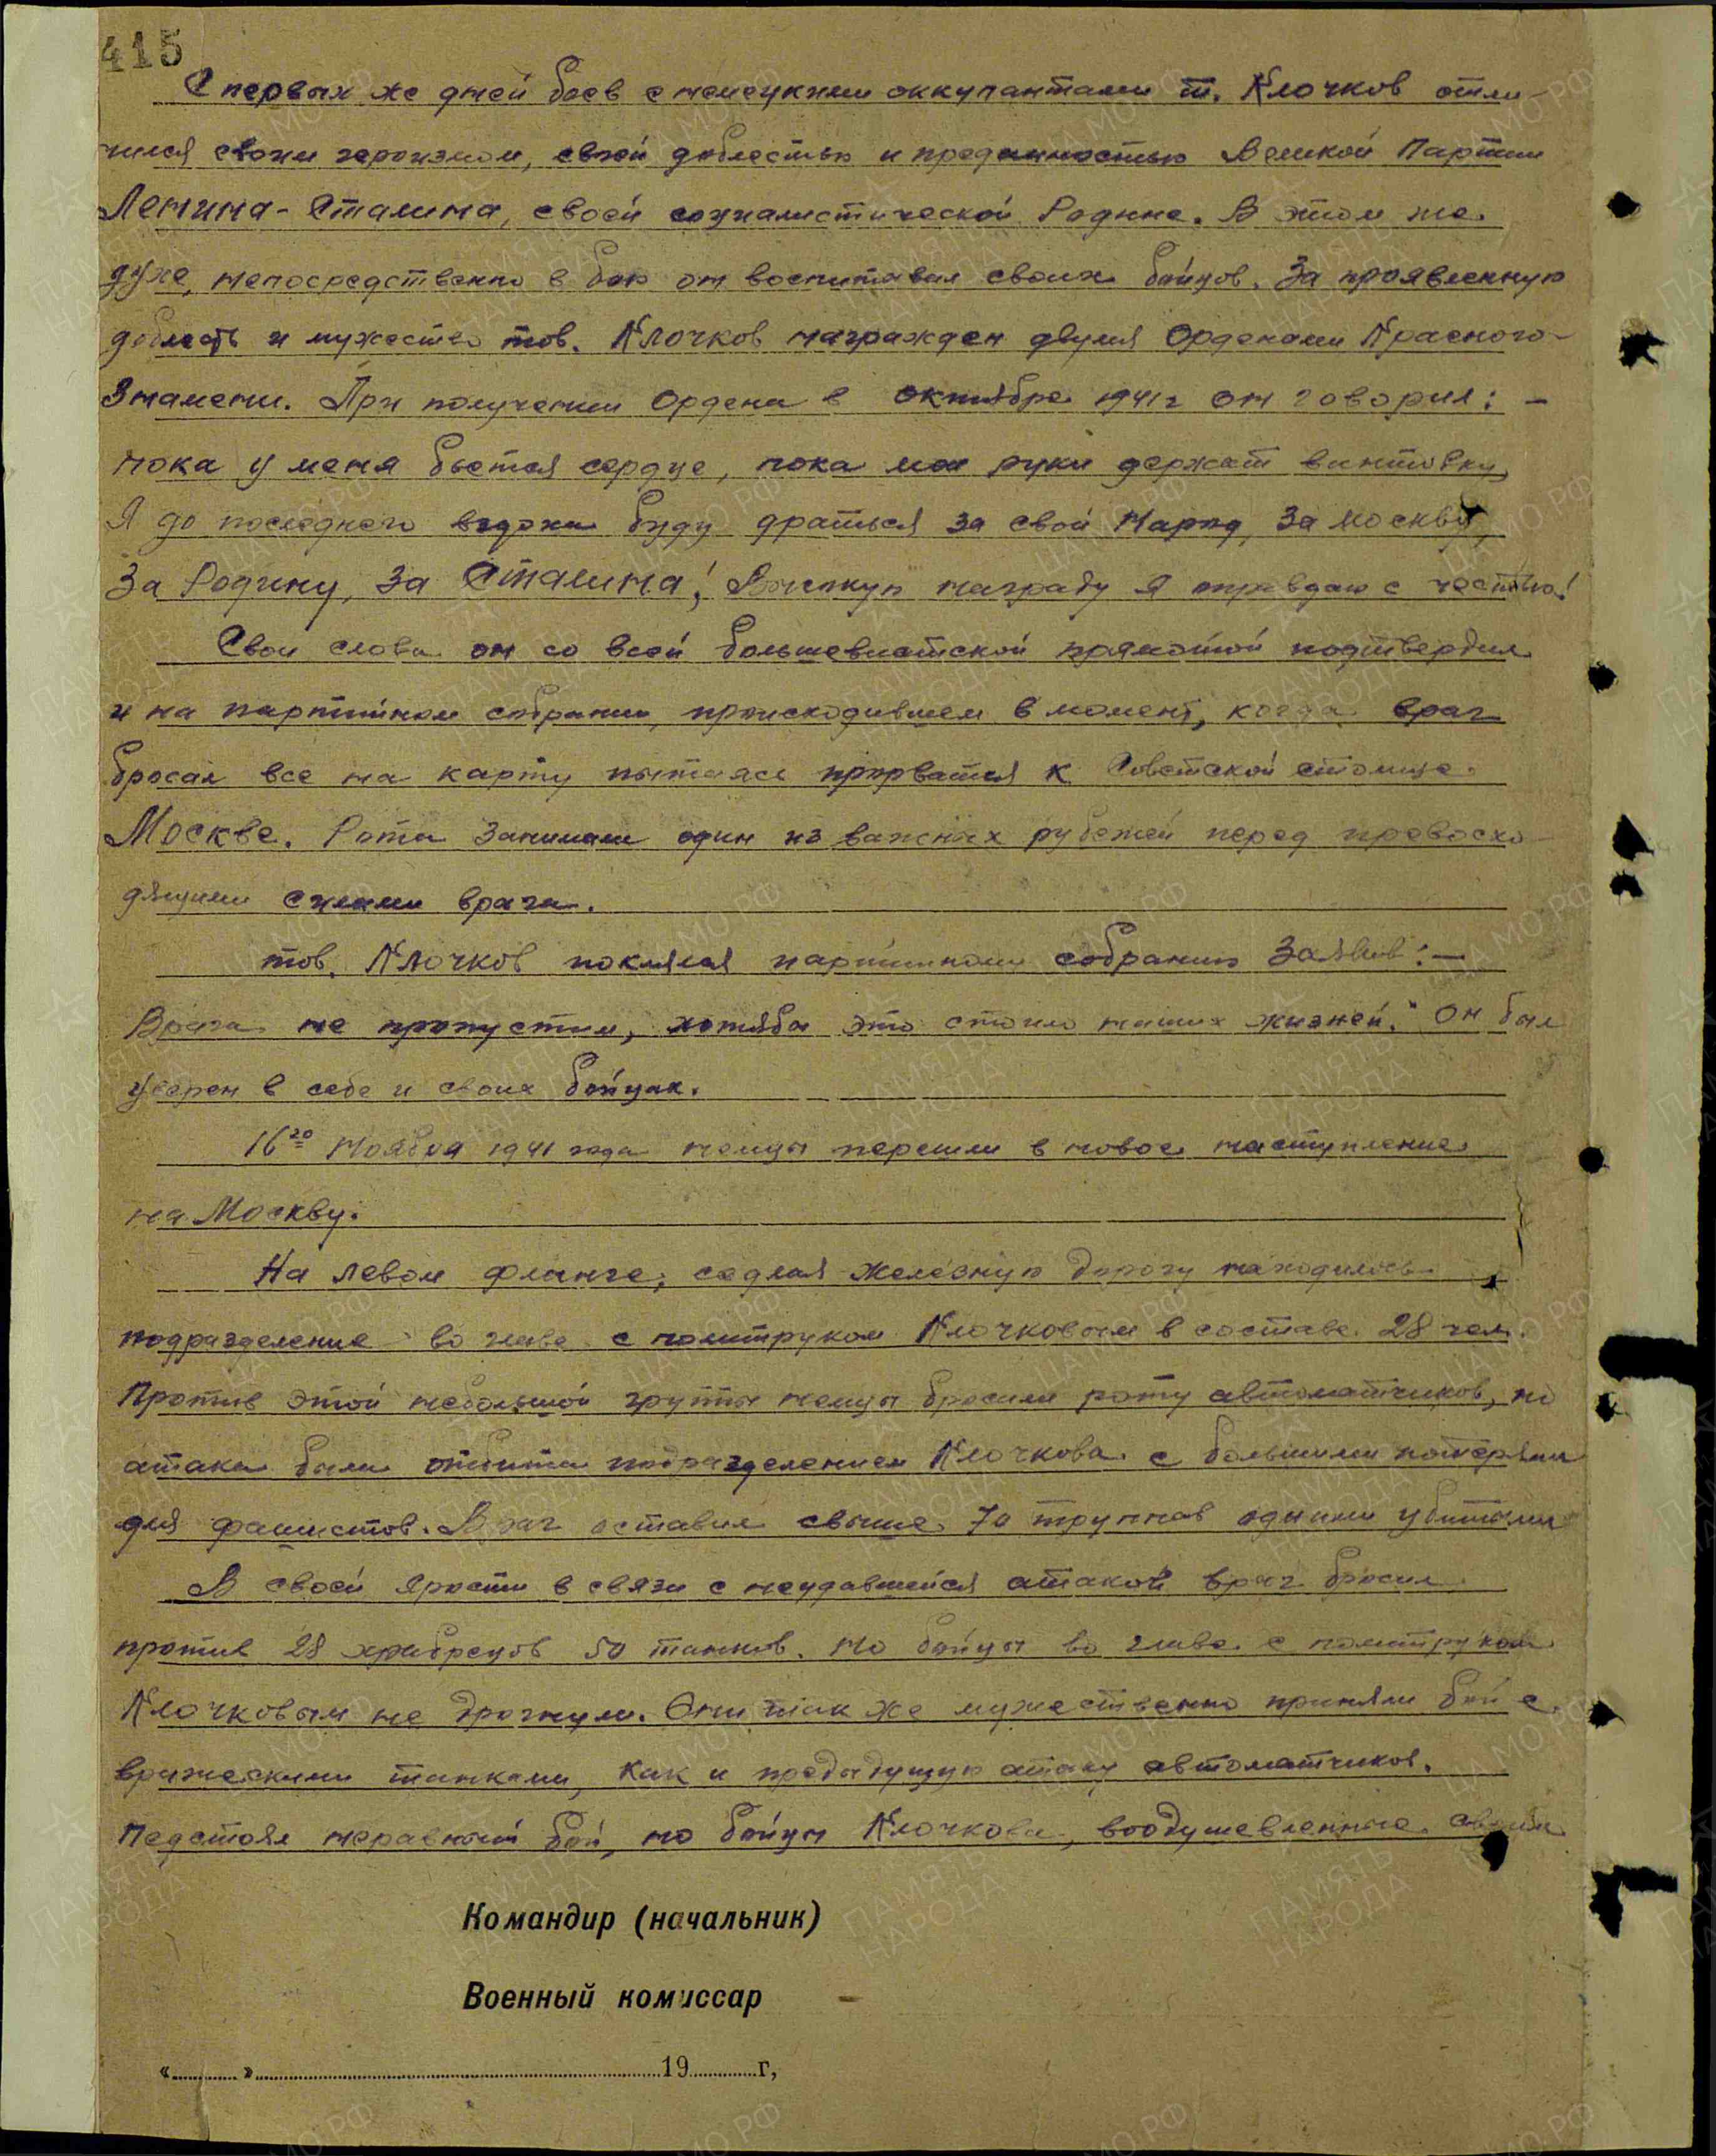 415
С первых же дней боев с немецкими оккупантами т. Клочков отли-
чился своим героизмом, своей доблестью и преданностью Великой Партии
Ленина-Сталина, своей социалистической Родине. В этом же
духе, непосредственно в бою он воспитывал своих бойцов. За проявленную
доблесть и мужество тов. Клочков награжден двумя Орденами Красного-
Знамени. При получении Ордена в октябре 1941г он говорил: -
пока у меня бьется сердце, пока мои руки держат винтовку,
Я до последнего вздоха буду драться за свой Народ, за москву,
За Родину, за Сталина! Высокую награду я оправдаю с честью!
Свои слова он со всей большевистской прямотой подтвердил
и на партийном собрании, происходившем в момент, когда враг
бросал все на карту пытаясь прорваться к Советской столице.
Москве. Рота занимала один из важных рубежей перед превосхо-
дящими силами врага.
тов. Клочков поклялся партийному собранию заявив: -
Врага не пропустим, хотябы это стоило наших жизней." Он был
уверен в себе и своих бойцах.
16го Ноября 1941 года немцы перешли в новое наступление
на Москву.
На левом фланге, седлая железную дорогу находилось
подразделение во главе с политруком Клочковым в составе 28 чел.
Против этой небольшой группы немцы бросили роту автоматчиков, но
атака была отбита подразделением Клочкова с большими потерями
для фашистов. Враг оставил свыше 70 трупов одними убитыми
В своей ярости в связи с неудавшейся атакой враг бросил
против 28 храбрецов 50 танков. Но бойцы во главе с политруком
Клочковым не дрогнули. Они так же мужественно приняли бой с
вражескими танками, как и предыдущую атаку автоматчиков.
Педстоял неравный бой, но бойцы Клочкова, воодушевленные своим
Командир (начальник)
Военный комиссар
«............»............................19............г,